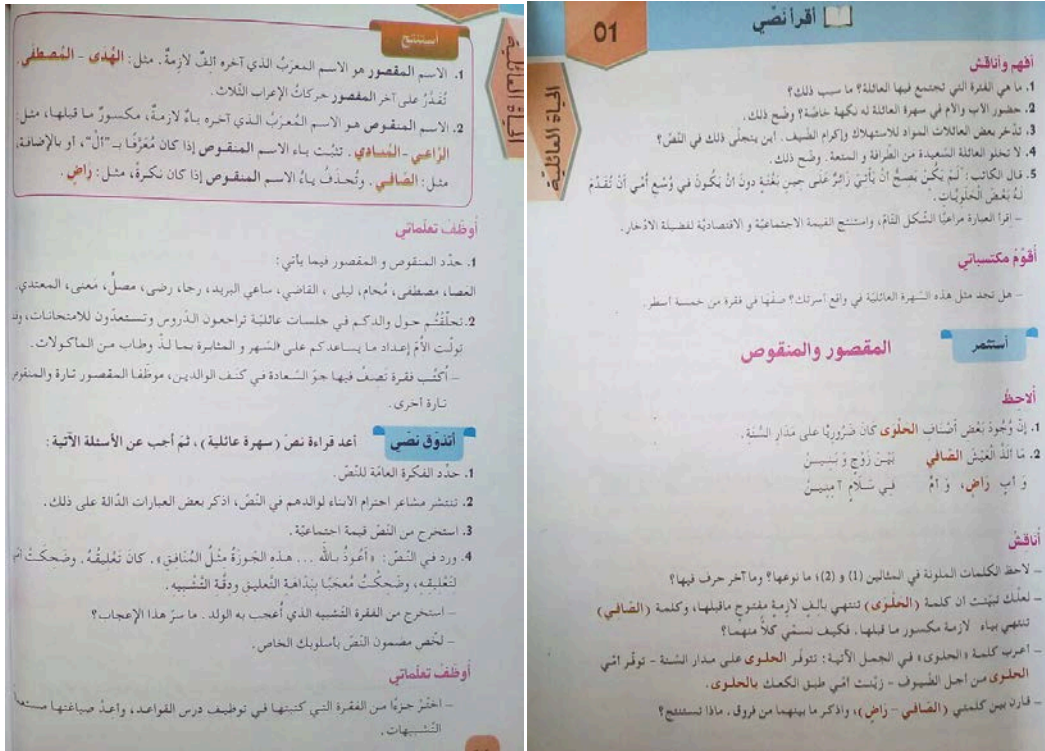 01
أقرأ نصّي
الحياة العائليّة
أفهم وأناقش
1. ما هي الفترة التي تجتمع فيها العائلة؟ ما سبب ذلك؟
2. حضور الأب والأم في سهرة العائلة له نكهة خاصّة؟ وضّح ذلك.
3. تدّخر بعض العائلات المواد للاستهلاك وإكرام الضّيف. أين يتجلّى ذلك في النّصّ؟
4. لا تخلو العائلة السّعيدة من الطّرافة و المتعة. وضّح ذلك.
5. قال الكاتب: "لَمْ يَكُنْ يَصِحُّ أَنْ يَأْتِيَ زَائِرٌ عَلَى حِينِ بَغْتَةٍ دونَ أَنْ يَكُونَ في وُسْعِ أُمّي أَنْ تُقَدِّمَ
لَهُ بَعْضَ الْحَلَوِيَّاتِ."
– إقرأ العبارة مراعيًا الشّكل التّامّ، واستنتج القيمة الاجتماعيّة و الاقتصاديّة لفضيلة الادّخار.
أقوّم مكتسباتي
– هل تجد مثل هذه السّهرة العائليّة في واقع أسرتك؟ صفها في فقرة من خمسة أسطر.
أستثمر
المقصور والمنقوص
ألاحظ
1. إنّ وُجُودَ بَعْضِ أَصْنَافِ الحَلْوَى كَانَ ضَرُورِيًّا على مَدَارِ السَّنَةِ.
2. مَا أَلَذَّ الْعَيْشَ الصَّافي بَيْنَ زَوْجٍ وَ بَنِينْ
وَ أَبٍ رَاضٍ، وَ أُمّ في سَلَامٍ آمِنِينْ
أناقش
– لاحظ الكلمات الملونة في المثالين (1) و (2)؛ ما نوعها؟ وما آخر حرف فيها؟
– لعلّك تبيّنت أن كلمة (الحَلْوَى) تنتهي بألف لازمة مفتوح ماقبلها، وكلمة (الصَّافِي)
تنتهي بياء لازمة مكسور ما قبلها. فكيف نسمّي كلاًّ منهما؟
– أعرب كلمة «الحلوَى» في الجمل الآتية: تتوفّر الحلوى على مدار السّنة – توفّر أمّي
الحلوى من أجل الضّيوف – زيّنت أمّي طبق الكعك بالحلوى.
– قارن بين كلمتي (الصّافي – راضٍ)، واذكر ما بينهما من فروق. ماذا تستنتج؟
الحياة العائليّة
أستنتج
1. الاسم المقصور هو الاسم المعرَبُ الذي آخره ألِفٌ لازِمةٌ. مثل: الهُدى – المُصطفَى.
تُقَدَّرُ على آخر المقصور حركاتُ الإعراب الثّلاث.
2. الاسم المنقوص هو الاسم المُعرَبُ الذي آخره ياءٌ لازمةٌ، مكسورٌ ما قبلها، مثل:
الرَّاعي – المُنادي. تثبُت ياء الاسم المنقوص إذا كان مُعَرَّفًا بـ"ألْ"، أو بالإضافة،
مثل: الصَّافي. وتُحذَفُ ياءُ الاسم المنقوص إذا كان نكرةً، مثل: راضٍ.
أوظّف تعلّماتي
1. حدّد المنقوص و المقصور فيما يأتي:
العصا، مصطفى، مُحام، ليلى، القاضي، ساعي البريد، رحا، رضى، مصلٍّ، مَعنى، المعتدي.
2. تحلّقتُم حول والدكم في جلسات عائليّة تراجعون الدّروس وتستعدّون للامتحانات، وقد
تولّت الأمّ إعداد ما يساعدكم على السّهر و المثابرة بما لذّ وطاب من المأكولات.
– أكتُب فقرة تَصفُ فيها جوّ السّعادة في كنف الوالدين، موظّفا المقصور تارة والمنقوص
تارة أخرى.
أتذوّق نصّي
أعد قراءة نصّ (سهرة عائلية)، ثمّ أجب عن الأسئلة الآتية:
1. حدّد الفكرة العامّة للنّصّ.
2. تنتشر مشاعر احترام الأبناء لوالدهم في النّصّ، اذكر بعض العبارات الدّالة على ذلك.
3. استخرج من النّصّ قيمة اجتماعيّة.
4. ورد في النّصّ: «أَعُوذُ بالله ... هذه الجَوزَةُ مثْلُ المُنَافِقِ». كانَ تَعْليقُهُ. وضَحِكَتْ أمّي
لتَعْليقِهِ، وضَحِكْتُ مُعجَبًا بِبَدَاهَةِ التَّعليق ودِقَّةِ التَّشْبيه.
– استخرج من الفقرة التّشبيه الذي أُعجب به الولد. ما سرّ هذا الإعجاب؟
– لخّص مضمون النّصّ بأسلوبك الخاص.
أوظّف تعلّماتي
– اختَرْ جزءًا من الفقرة التي كتبتها في توظيف درس القواعد، وأعدْ صياغتها
التّشبيهات.